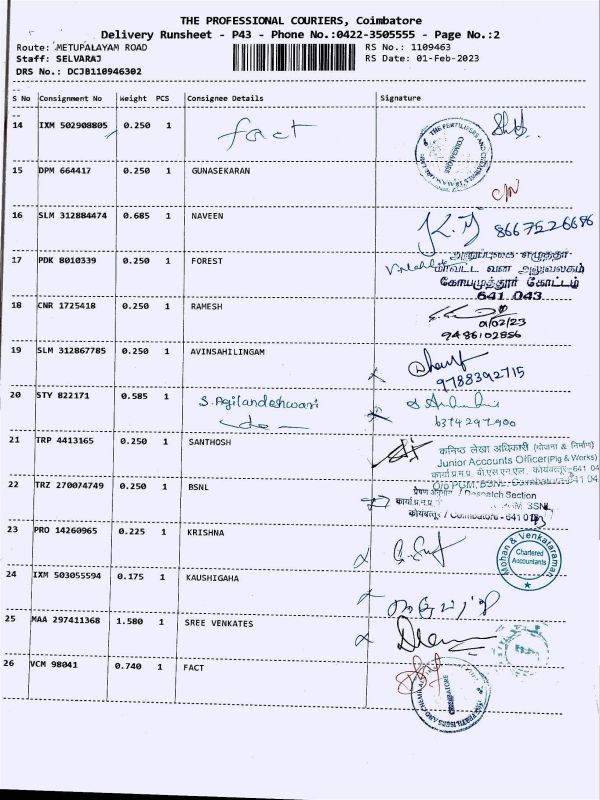 THE PROFESSIONAL COURIERS, Coimbatore
Delivery Runsheet - P43 - Phone No.:0422-3505555 - Page No.:2
Route: METUPALAYAM ROAD RS No.: 1109463
Staff: SELVARAJ RS Date: 01-Feb-2023
DRS No.: DCJB110946302
S No Consignment No Weight PCS Consignee Details Signature
14 IXM 502908805 0.250 1 fact
15 DPM 664417 0.250 1 GUNASEKARAN
16 SLM 312884474 0.685 1 NAVEEN 8667526686
17 PDK 8010339 0.250 1 FOREST
மாவட்ட வன அலுவலகம்
கோயமுத்தூர் கோட்டம்
641 043
18 CNR 1725418 0.250 1 RAMESH
01/02/23
9486102856
19 SLM 312867785 0.250 1 AVINSAHILINGAM
9788392715
20 STY 822171 0.585 1 S. Agilandeshwari
6374297900
21 TRP 4413165 0.250 1 SANTHOSH
कनिष्ठ लेखा अधिकारी (योजना & निर्माण)
Junior Accounts Officer (Plg & Works)
O/o PGM, BSNL, Coimbatore-641 04
22 TRZ 270074749 0.250 1 BSNL
प्रेषण अनुभाग / Despatch Section
BSNL
कोयंबत्तूर / Coimbatore - 641 0
23 PRO 14260965 0.225 1 KRISHNA
Mohan & Venkataraman
Chartered
Accountants
24 IXM 503055594 0.175 1 KAUSHIGAHA
25 MAA 297411368 1.580 1 SREE VENKATES
26 VCM 98041 0.740 1 FACT